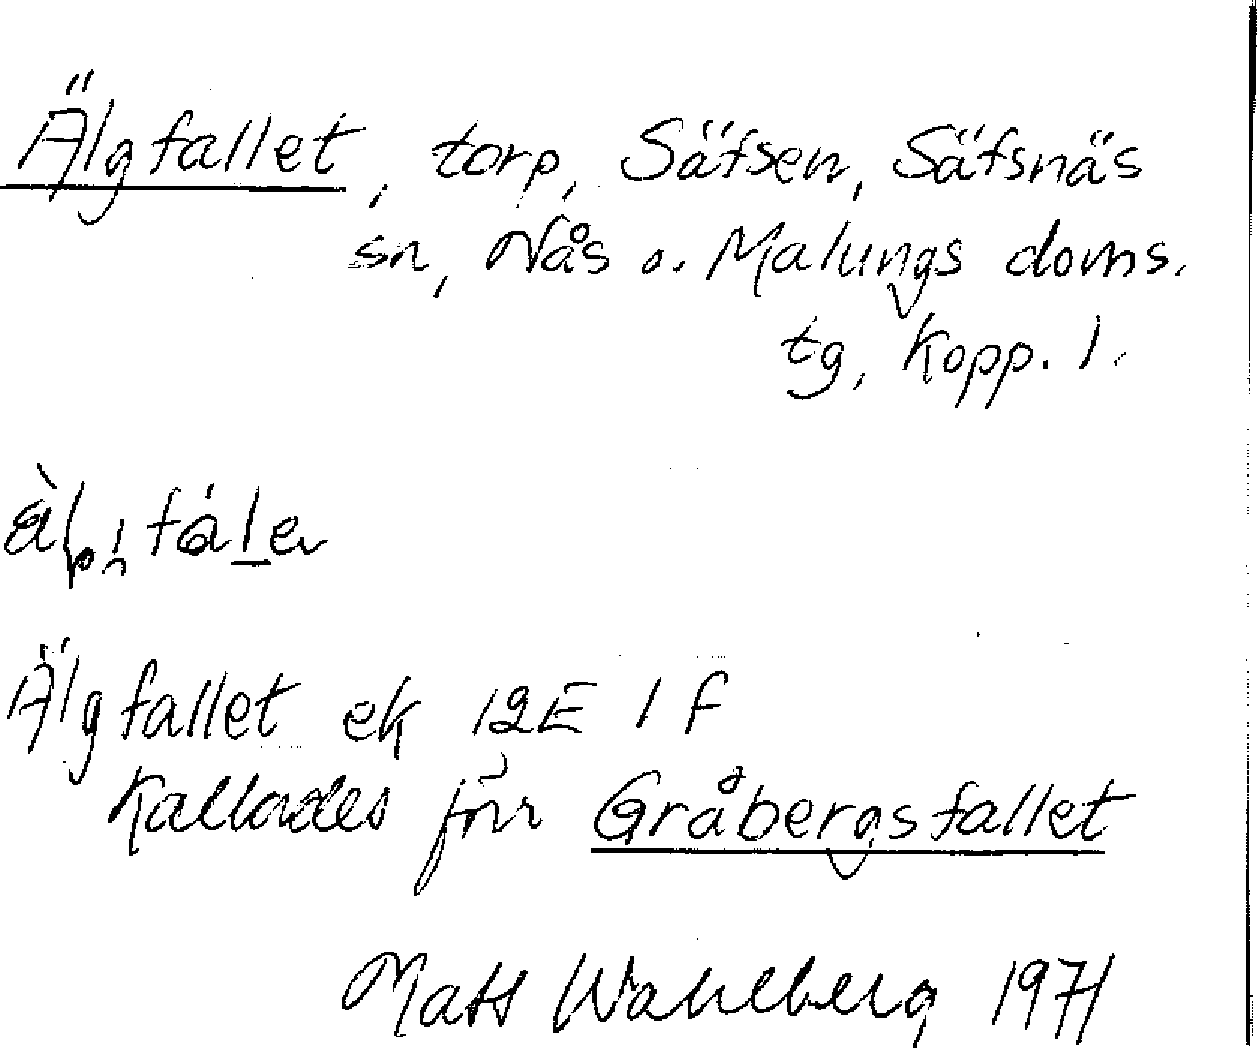 Älgfallet, torp, Säfsen, Säfsnäs
sn, Nås o. Malungs doms.
tg, Kopp. l.
Älgfallet ek 12E 1 f
Kallades förr Gråbergsfallet
Mats Wahlberg 1971